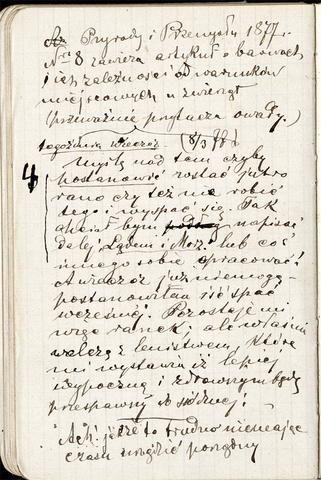 Przyrody i Przemysłu 1877.
Nr 8 zawiera artykuł o barwach
i ich zależności od warunków
miejscowych u zwierząt
(przeważnie przytacza owady.)
tegoż dnia wieczór (8/3 78)
4 Myślę nad tem czyby
postanowić wstać jutro
rano czy też nie robić
tego i wyspać się. Tak
chciał bym napisać
dalej Lądem i Morz. lub coś
innego sobie opracować!
A wieczór już niemogę
postanowiłem iść spać
wcześniej. Pozostaje mi
więc ranek; ale właśnie
walczę z lenistwem, które
mi wystawia iż lepiej
wypocznę i zdrowszym będę
przespawszy
Ach! jakże to trudno nie mając
czasu urządzić porządny